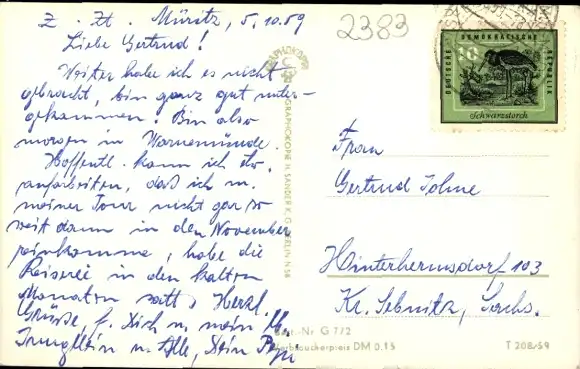 Z. Zt. Müritz, 5.10.59
Liebe Gertrud!
Weiter habe ich es nicht
gebracht, bin ganz gut unter-
gekommen. Bin also
morgen in Warnemünde.
Hoffentl. kann ich so
aufarbeiten, daß ich m.
meiner Tour nicht gar so
weit dann in den November
reinkomme, habe die
Reiserei in den kalten
Monaten satt. Herzl.
Grüsse, f. Dich u. mein
u. Alle, Dein
2383
GRAPHOKOPIE
GRAPHOKOPIE H. SANDER K.G. BERLIN N 58
DEUTSCHE DEMOKRATISCHE REPUBLIK
Schwarzstorch
Frau
Gertrud Johne
Hinterhermsdorf 103
Kr. Sebnitz, Sachs.
Best.-Nr. G 7/2
Verbraucherpreis DM 0.15
T 208/59